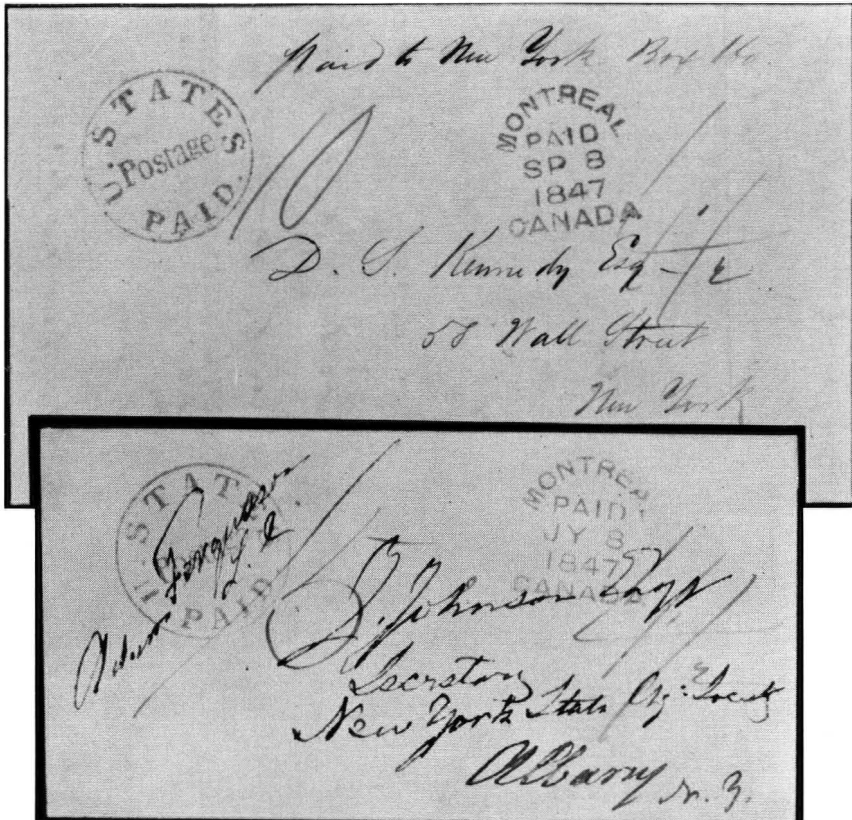 Paid to New York Box
U. STATES
Postage
PAID.
10
MONTREAL
PAID
SP 8
1847
CANADA
D. S. Kennedy Esq
58 Wall Street
New York
U. STATES
PAID.
Adam Fergusson
MONTREAL
PAID
JY 8
1847
CANADA
Johnson Esqr
Secretary
New York State Ag: Society
Albany N.Y.